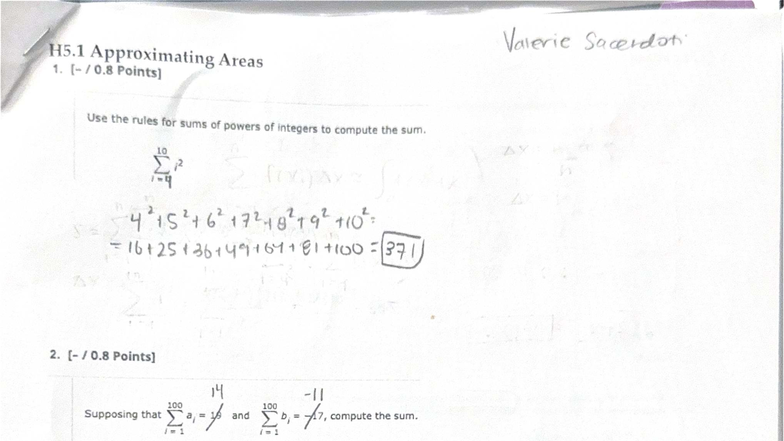 Valerie Sacerdoti
H5.1 Approximating Areas
1. [- / 0.8 Points]
Use the rules for sums of powers of integers to compute the sum.
10
∑ i²
i = 4
4² + 5² + 6² + 7² + 8² + 9² + 10² =
= 16 + 25 + 36 + 49 + 64 + 81 + 100 = 371
2. [- / 0.8 Points]
14 -11
100 100
Supposing that ∑ aᵢ = and ∑ bᵢ = -17, compute the sum.
i = 1 i = 1